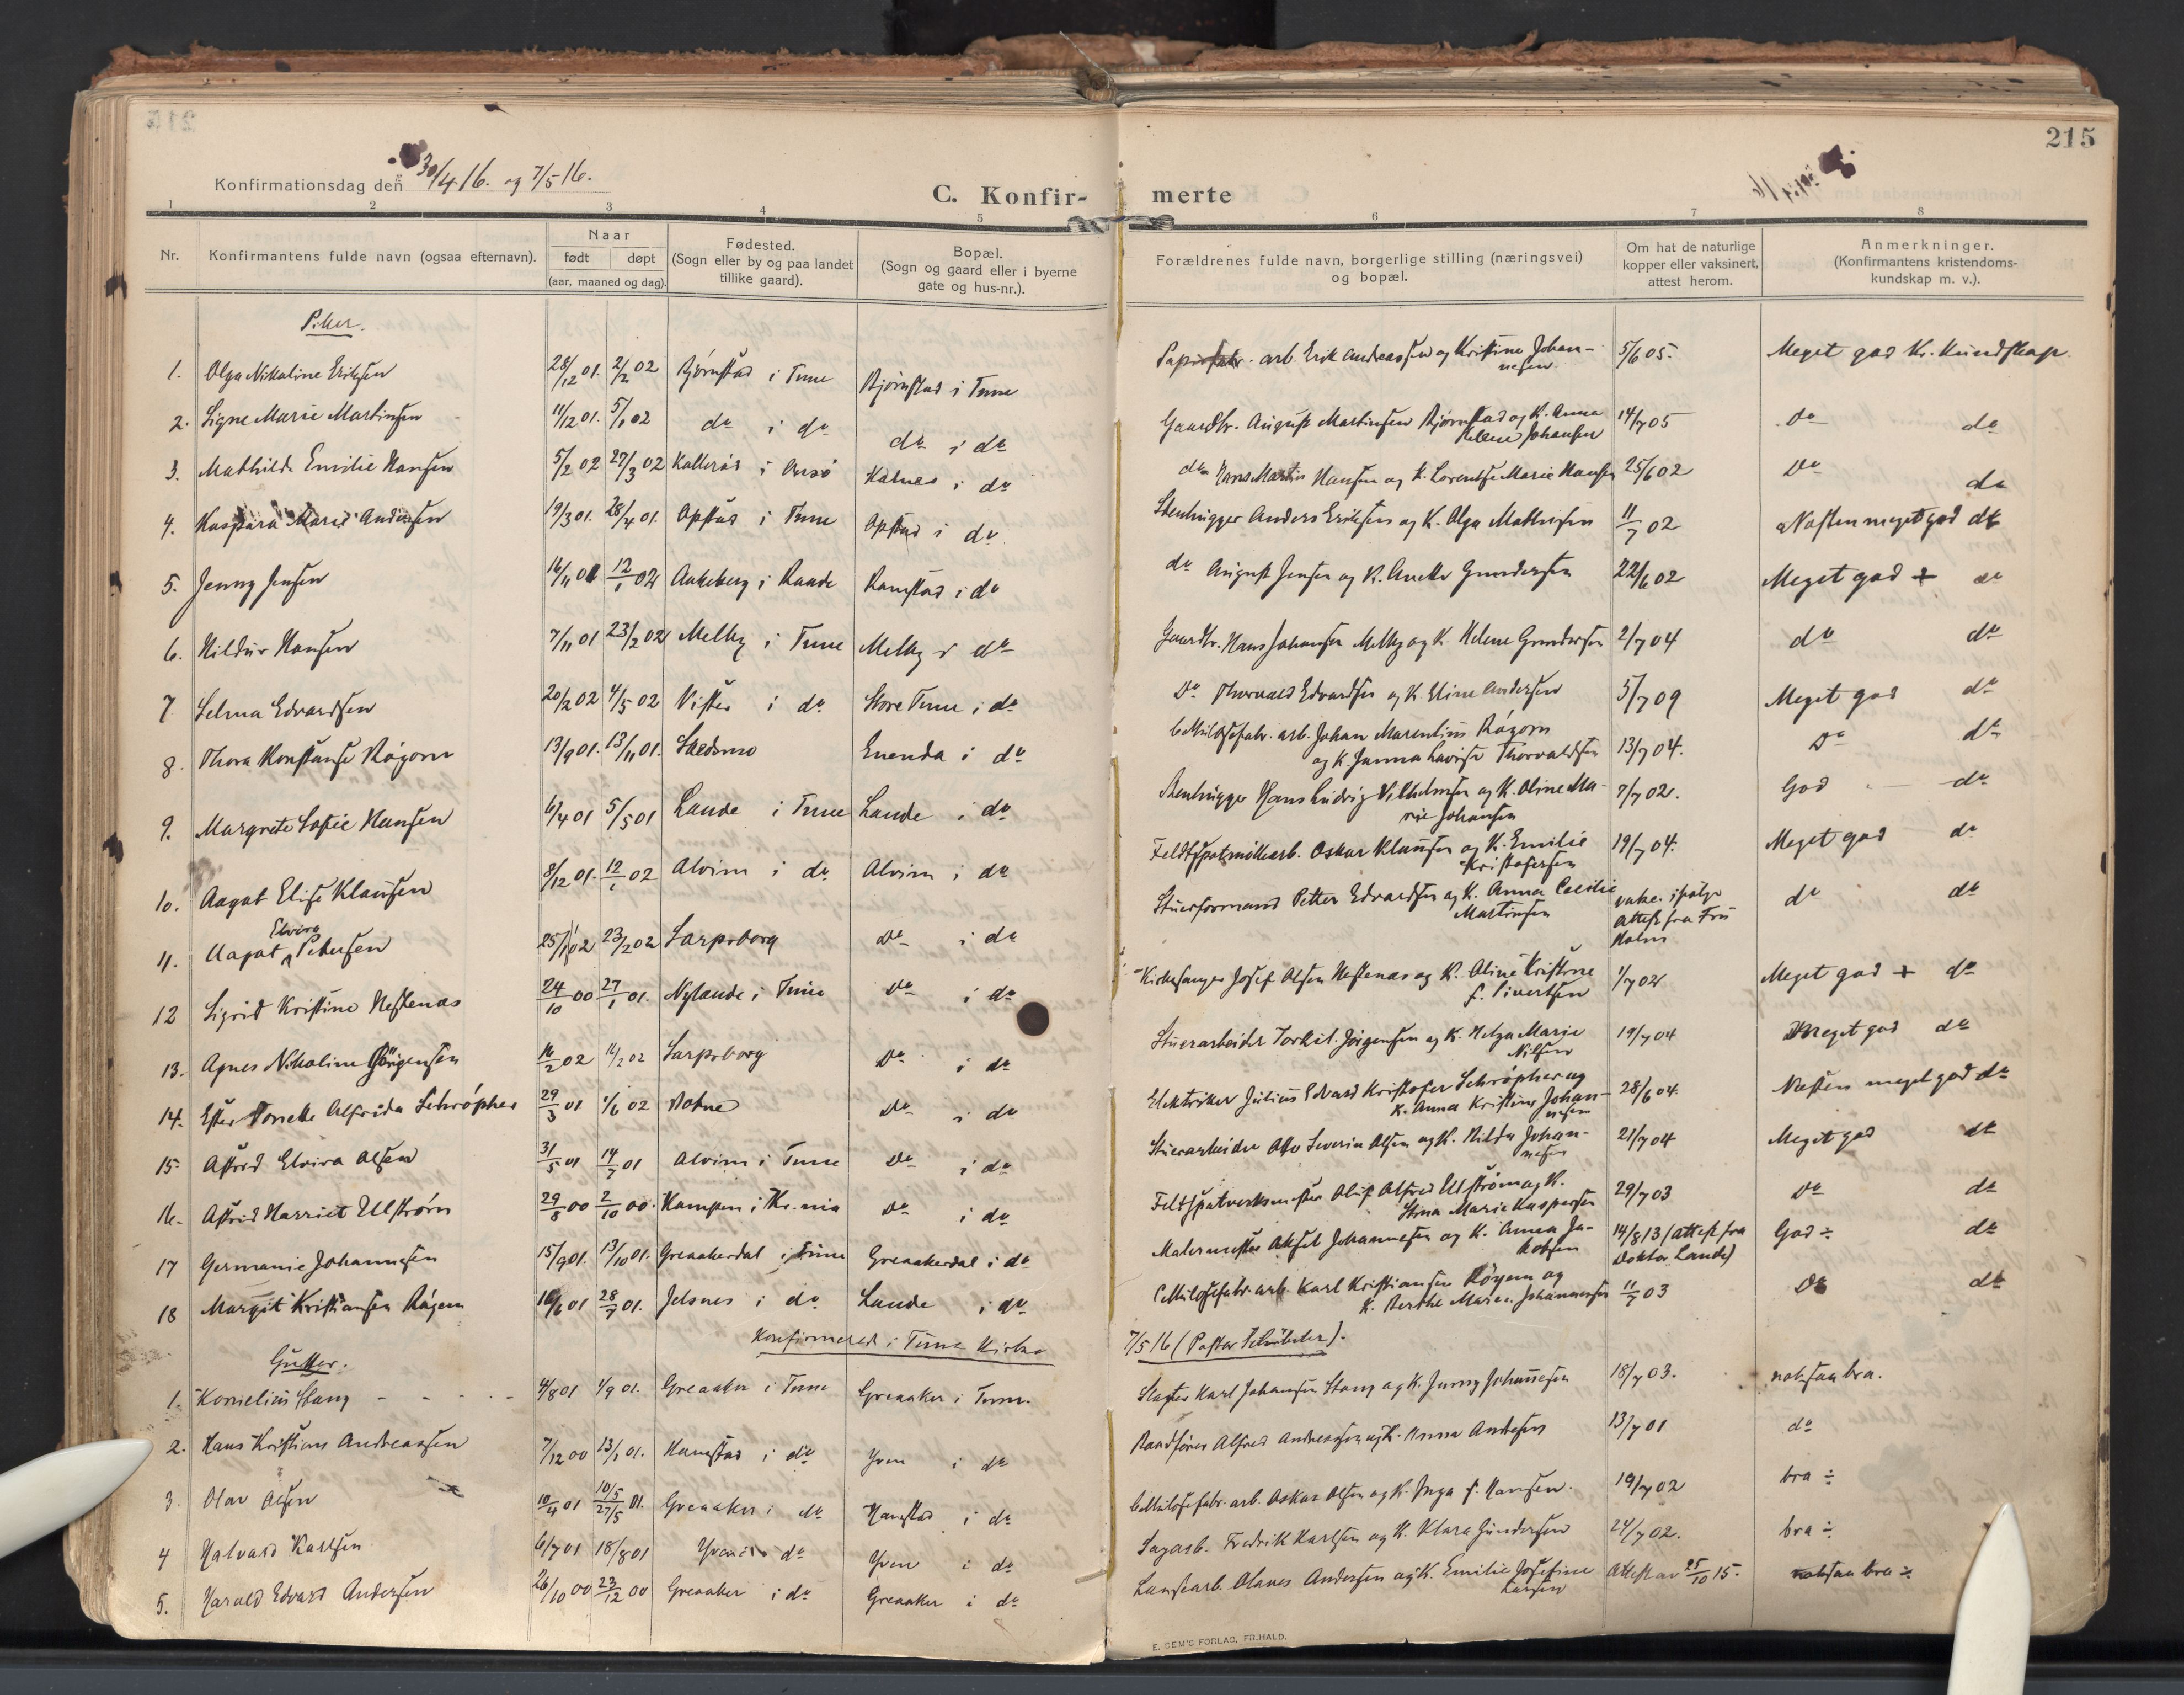 215
Konfirmationsdag den 30/4 16. og 7/5 16.
C. Konfir- merte
1 2 3 4 5 6 7 8
Nr. Konfirmantens fulde navn (ogsaa efternavn). Naar født døpt (aar, maaned og dag). Fødested. (Sogn eller by og paa landet tillike gaard). Bopæl. (Sogn og gaard eller i byerne gate og hus-nr.). Forældrenes fulde navn, borgerlige stilling (næringsvei) og bopæl. Om hat de naturlige kopper eller vaksinert, attest herom. Anmerkninger. (Konfirmantens kristendoms- kundskap m. v.).
Piker.
1. Olga Nikoline Eriksen 28/12 01. 2/2 02 Bjørnstad i Tune Bjørnstad i Tune arb. Erik Andreassen og Kristine Johan- nesen 5/6 05. Meget god Kr. Kundskap.
2. Signe Marie Martinsen 11/12 01. 5/1 02 do i do do i do Gaardbr. August Martinsen Bjørnstad og K. Anna Helene Johansen 14/7 05 Do do
3. Mathilde Emilie Hansen 5/2 02 27/3 02 i Onsø Kalnes i do do Hans Martin Hansen og K. Lorentse Marie Hansen 25/6 02 Do do
4. Kaspara Marie Andersen 19/3 01. 28/4 01. Opstad i Tune Opstad i do Stenhugger Anders Eriksen og K. Olga Mathisen 11/7 02 Næsten meget god do
5. Jenny Jensen 16/11 01 12/1 02 Ankeberg i Raade Ramstad i do do August Jensen og K. Anette Gundersen 22/6 02 Meget god + do
6. Hildur Hansen 7/11 01 23/2 02 Melby i Tune Melby i do Gaardbr. Hans Johansen Melby og K. Helene Gundersen 2/7 04 do do
7 Selma Edvardsen 20/2 02 4/5 02 Vister i do Store Tune i do Do Thorvald Edvardsen og K. Eline Andersen 5/7 09 Meget god do
8. Thora Konstanse Raagorn 13/9 01. 13/11 01. Skedsmo Enenda i do Cellulosefabr. arb. Johan Marentius Raagorn og K. Janna Lovise Thorvaldsen 13/7 04. Do do
9. Margrete Sofie Hansen 6/4 01 5/5 01 Lande i Tune Lande i do Stenhugger Hans Ludvig Vilhelmsen og K. Oline Ma- rie Johansen 7/7 02. God do
10. Aagot Elise Klausen 8/12 01. 12/1 02 Alvim i do Alvim i do Feldtspatmøllearb. Oskar Klausen og K. Emilie Kristofersen 19/7 04. Meget god do
11. Aagot Elvira Petersen 25/1 02 23/2 02 Sarpsborg Do i do Stuerformand Petter Edvardsen og K. Anna Cecilie Martinsen vakc. ifølge Attest fra Fru Holm do do
12 Sigrid Kristine Hestenæs 24/10 00 27/1 01. Nylande i Tune Do i do Kirkesanger Josef Olsen Hestenæs og K. Aline Kristine f. Sivertsen 1/7 02 Meget god + do
13. Agnes Nikoline Jörgensen 16/2 02 Sarpsborg Do i do Stuerarbeider Torkil Jörgensen og K. Helga Marie Nilsen 19/7 04 Meget god do
14. Ester Alfrida Schröpher 29/3 01 1/6 02 Do i do Elektriker Julius Edvard Kristofer Schröpher og K. Anna Kristine Johan- nesen 28/6 04. Næsten meget god do
15. Astrid Elvira Olsen 31/5 01 14/7 01 Alvim i Tune Do i do Stuerarbeider Otto Severin Olsen og K. Hilda Johan- nesen 21/7 04 Meget god do
16. Astrid Harriet Ulstrøm 29/8 00 2/10 00. Kampen i Kr.nia Do i do Feldtspatverksmester Oluf Alfred Ulstrøm og K. Stina Marie Kaspersen 29/7 03 Do do
17 Germanie Johannesen 15/9 01. 13/10 01. Greaakerdal i Tune Greaakerdal i do Malermester Aksel Johannesen og K. Anna Ja- kobsen 14/8 13 (attest fra Doktor Lande) God ÷ do
18 Margit Kristiansen Raagorn 10/6 01 28/7 01. Jelsnes i do Lande i do Cellulosefabr. arb. Karl Kristiansen og K. Berthe Marie Johannessen 11/7 03 Do do
Konfirmered i Tune Kirke 7/5 16 (Pastor ).
Gutter.
1. Kornelius Stang 4/8 01 1/9 01. Greaaker i Tune Greaaker i Tune Slagter Karl Johansen Stang og K. Jenny Johannesen 18/7 03. noksaa bra.
2. Hans Kristian Andreassen 7/12 00 13/1 01. Hanestad i do Yven i do Alfred Andreassen og K. Anna Andersen 13/7 01 do
3. Olav Olsen 10/4 01 10/5 27/5 01. Greaaker i do Hanestad i do Cellulosefabr. arb. Oskar Olsen og K. Inga f. Hansen. 19/7 02 bra ÷
4 Halvard Karlsen 6/7 01 18/8 01 Yven i do Yven i do Sagarb. Fredrik Karlsen og K. Klara Gundersen 24/7 02. bra ÷
5. Harald Edvard Andersen 26/10 00 23/12 00 Greaaker i do Greaaker i do Lensearb. Olaves Andersen og K. Emilie Josefine Larsen Attest av 25/10 15. noksaa bra ÷
E. SEM'S FORLAG, FR.HALD.